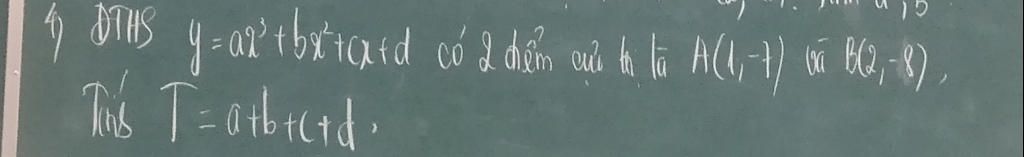 4) ĐTHS y=ax³+bx²+cx+d có 2 điểm cực trị là A(1,-7) và B(2,-8),
Tính T=a+b+c+d.